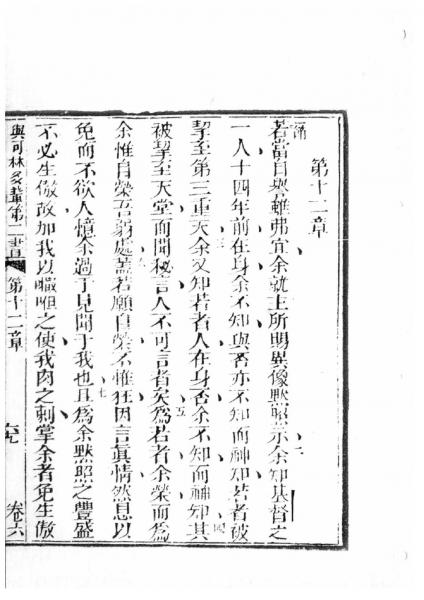 第十二章
若當自舉雖弗宜余就主所賜異像默照示余知基督之
一人十四年前在身余不知與否亦不知而神知若者被
挈至第三重天余又知若者人在身否余不知而神知其
被挈至天堂而聞秘言人不可言者矣為若者余榮而為
余惟自榮吾弱處蓋若願自榮不惟狂因言真情然息以
免而不欲人憶余過于見聞于我也且為余默照之豐盛
不必生傲故加我以嘅呾之使我肉之刺掌余者免生傲
與可林多輩第二書 第十二章 卷六
二
三
四
五
七